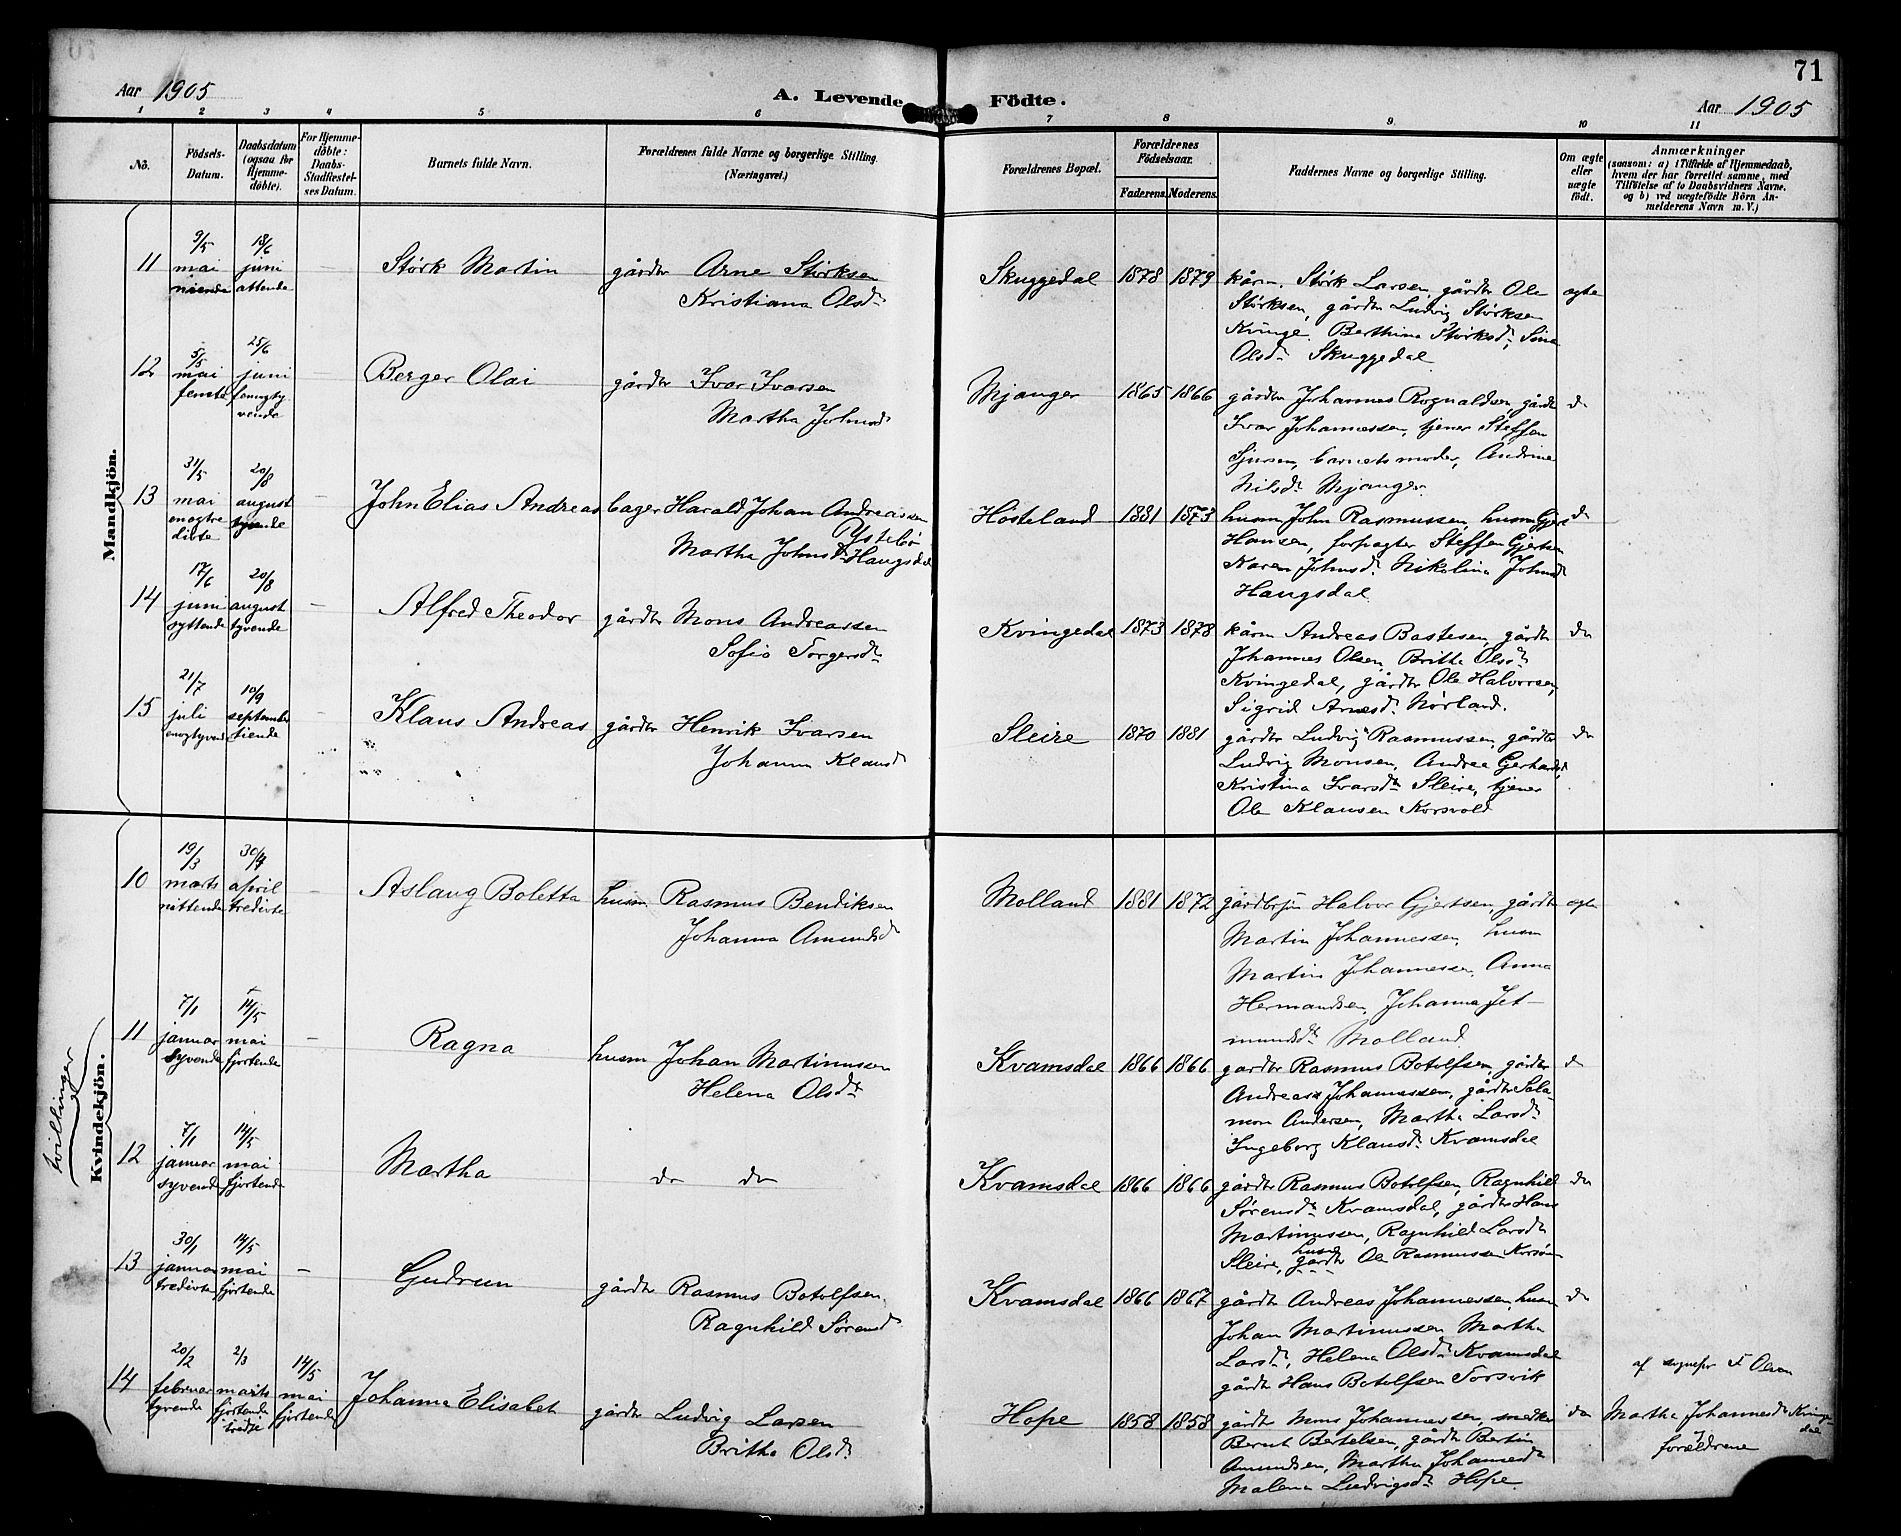 71
Aar 1905
A. Levende Födte.
Aar 1905
1 2 3 4 5 6 7 8 9 10 11
No.
Födsels-Datum.
Daabsdatum (ogsaa for Hjemmedöbte).
For Hjemmedöbte: Daabs-Stadfæstelses Datum.
Barnets fulde Navn.
Forældrenes fulde Navne og borgerlige Stilling. (Næringsvei.)
Forældrenes Bopæl.
Forældrenes Födselsaar.
Faderens. Moderens.
Faddernes Navne og borgerlige Stilling.
Om ægte eller uægte født.
Anmærkninger
(saasom: a) i Tilfælde af Hjemmedaab,
hvem der har forrettet samme, med
Tilföielse af to Daabsvidners Navne.
og b) ved uægtefödte Börn An-
melderens Navn m. V.)
Mandkjön.
11
9/5 mai niende
18/6 juni attende
Størk Martin
gårdbr Arne Størksen
Kristiana Olsdtr
Skuggedal
1878 1879
kårm. Størk Larsen, gårdbr Ole
Størksen, gårdbr Ludvig Størksen
Kvinge. Berthina Størksd., Sina
Olsdtr Skuggedal
ægte
12
5/5 mai femte
25/6 juni femogtyvende
Berger Olai
gårdbr Ivar Ivarsen
Martha Johnsd
Mjanger
1865 1866
gårdbr Johannes Rognaldsen, gårdbr
Ivar Johannessen, tjener Steffen
Sjursen, barnets moder, Andrine
Nilsdtr Mjanger.
do
13
31/5 mai enogtredivte
20/8 august tyvende
John Elias Andreas
bager Harald Johan Andreassen
Ystebø
Martha Johnsdtr Haugsdal
Hosteland
1881 1873
husm John Rasmussen, husm Gjert
Hansen, forpagter Steffen Gjertsen
Karen Johnsd. Nikolina Johnsd
Haugsdal
do
14
17/6 juni syttende
20/8 august tyvende
Alfred Theodor
gårdbr Mons Andreassen
Sofie Torgersdtr
Kvingedal
1873 1878
kårm Andreas Bastesen, gårdbr
Johannes Olsen, Britha Olsdtr
Kvingedal, gårdbr Ole Halvorsen,
Sigrid Arnesd. Nørland.
do
15
21/7 juli enogtyvende
10/9 september tiende
Klaus Andreas
gårdbr Henrik Ivarsen
Johanna Klausd
Sleire
1870 1881
gårdbr Ludvig Rasmussen, gårdbr
Ludvig Monsen, Andrea Gerhardsd,
Kristina Ivarsdtr Sleire, tjener
Ole Klausen Korsvold
do
Kvindekjön.
10
19/3 marts nittende
30/4 april tredivte
Aslaug Boletta
husm Rasmus Bendiksen
Johanna Amundsd
Molland
1881 1872
gårdbrsøn Halvor Gjertsen, gårdbr
Martin Johannessen, husm
Martin Johannessen, Anna
Hermandsen, Johanna Jet-
mundsdtr Molland
ægte
tvillinger
11
7/1 januar syvende
14/5 mai fjortende
Ragna
husm Johan Martinussen
Helena Olsdtr
Kvamsdal
1866 1866
gardbr Rasmus Botolfsen, gårdbr
Andreas Johannessen, gårdbr Sala-
mon Andersen, Martha Larsdtr
Ingeborg Klausdtr Kvamsdal
do
12
7/1 januar syvende
14/5 mai fjortende
Martha
do do
Kvamsdal
1866 1866
gårdbr Rasmus Botolfsen, Ragnhild
Sørensdtr Kvamsdal, gårdbr Hans
Martinussen, Ragnhild Larsdtr
Sleire, husm gårdbr Ole Rasmussen Korsøn
do
13
30/1 januar tredivte
14/5 mai fjortende
Gudrun
gårdbr Rasmus Botolfsen,
Ragnhild Sørensd
Kvamsdal
1866 1867
gårdbr Andreas Johannessen, husm
Johan Martinussen Martha
Larsdtr, Helena Olsdtr Kvamsdal
gårdbr Hans Botolfsen Torsvik
do
14
20/2 februar tyvende
2/3 marts fjortende tredje
14/5 mai fjortende
Johanna Elisabet
gårdbr Ludvig Larsen
Britha Olsdtr
Hope
1858 1858
gårdbr Mons Johannessen, smedker
Bernt Bertelsen, gårdbr Bertin
Amundsen, Martha Johannesdtr
Malena Ludvigsdtr Hope.
do
af sognepr F Olsen
Martha Johannesdtr Kvingedal
forældrene